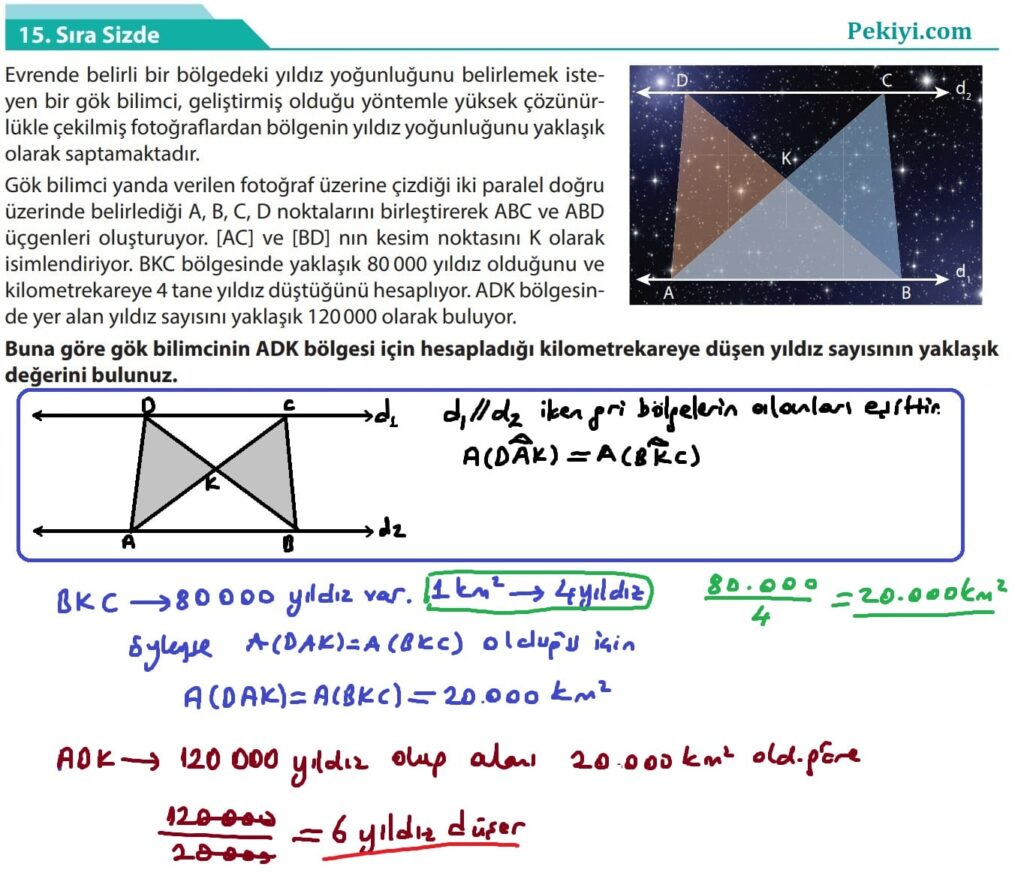 15. Sıra Sizde
Pekiyi.com
Evrende belirli bir bölgedeki yıldız yoğunluğunu belirlemek iste-
yen bir gök bilimci, geliştirmiş olduğu yöntemle yüksek çözünür-
lükle çekilmiş fotoğraflardan bölgenin yıldız yoğunluğunu yaklaşık
olarak saptamaktadır.
Gök bilimci yanda verilen fotoğraf üzerine çizdiği iki paralel doğru
üzerinde belirlediği A, B, C, D noktalarını birleştirerek ABC ve ABD
üçgenleri oluşturuyor. [AC] ve [BD] nın kesim noktasını K olarak
isimlendiriyor. BKC bölgesinde yaklaşık 80 000 yıldız olduğunu ve
kilometrekareye 4 tane yıldız düştüğünü hesaplıyor. ADK bölgesin-
de yer alan yıldız sayısını yaklaşık 120 000 olarak buluyor.
D C d₂
K
A B d₁
Buna göre gök bilimcinin ADK bölgesi için hesapladığı kilometrekareye düşen yıldız sayısının yaklaşık
değerini bulunuz.
D C d₁
K
A B d₂
d₁//d₂ iken gri bölgelerin alanları eşittir.
A(DAK) = A(BKC)
BKC → 80000 yıldız var. 1 km² → 4 yıldız
80.000 / 4 = 20.000 km²
öyleyse A(DAK)=A(BKC) olduğu için
A(DAK)=A(BKC)=20.000 km²
ADK → 120 000 yıldız olup alanı 20.000 km² old. göre
120 000 / 20 000 = 6 yıldız düşer